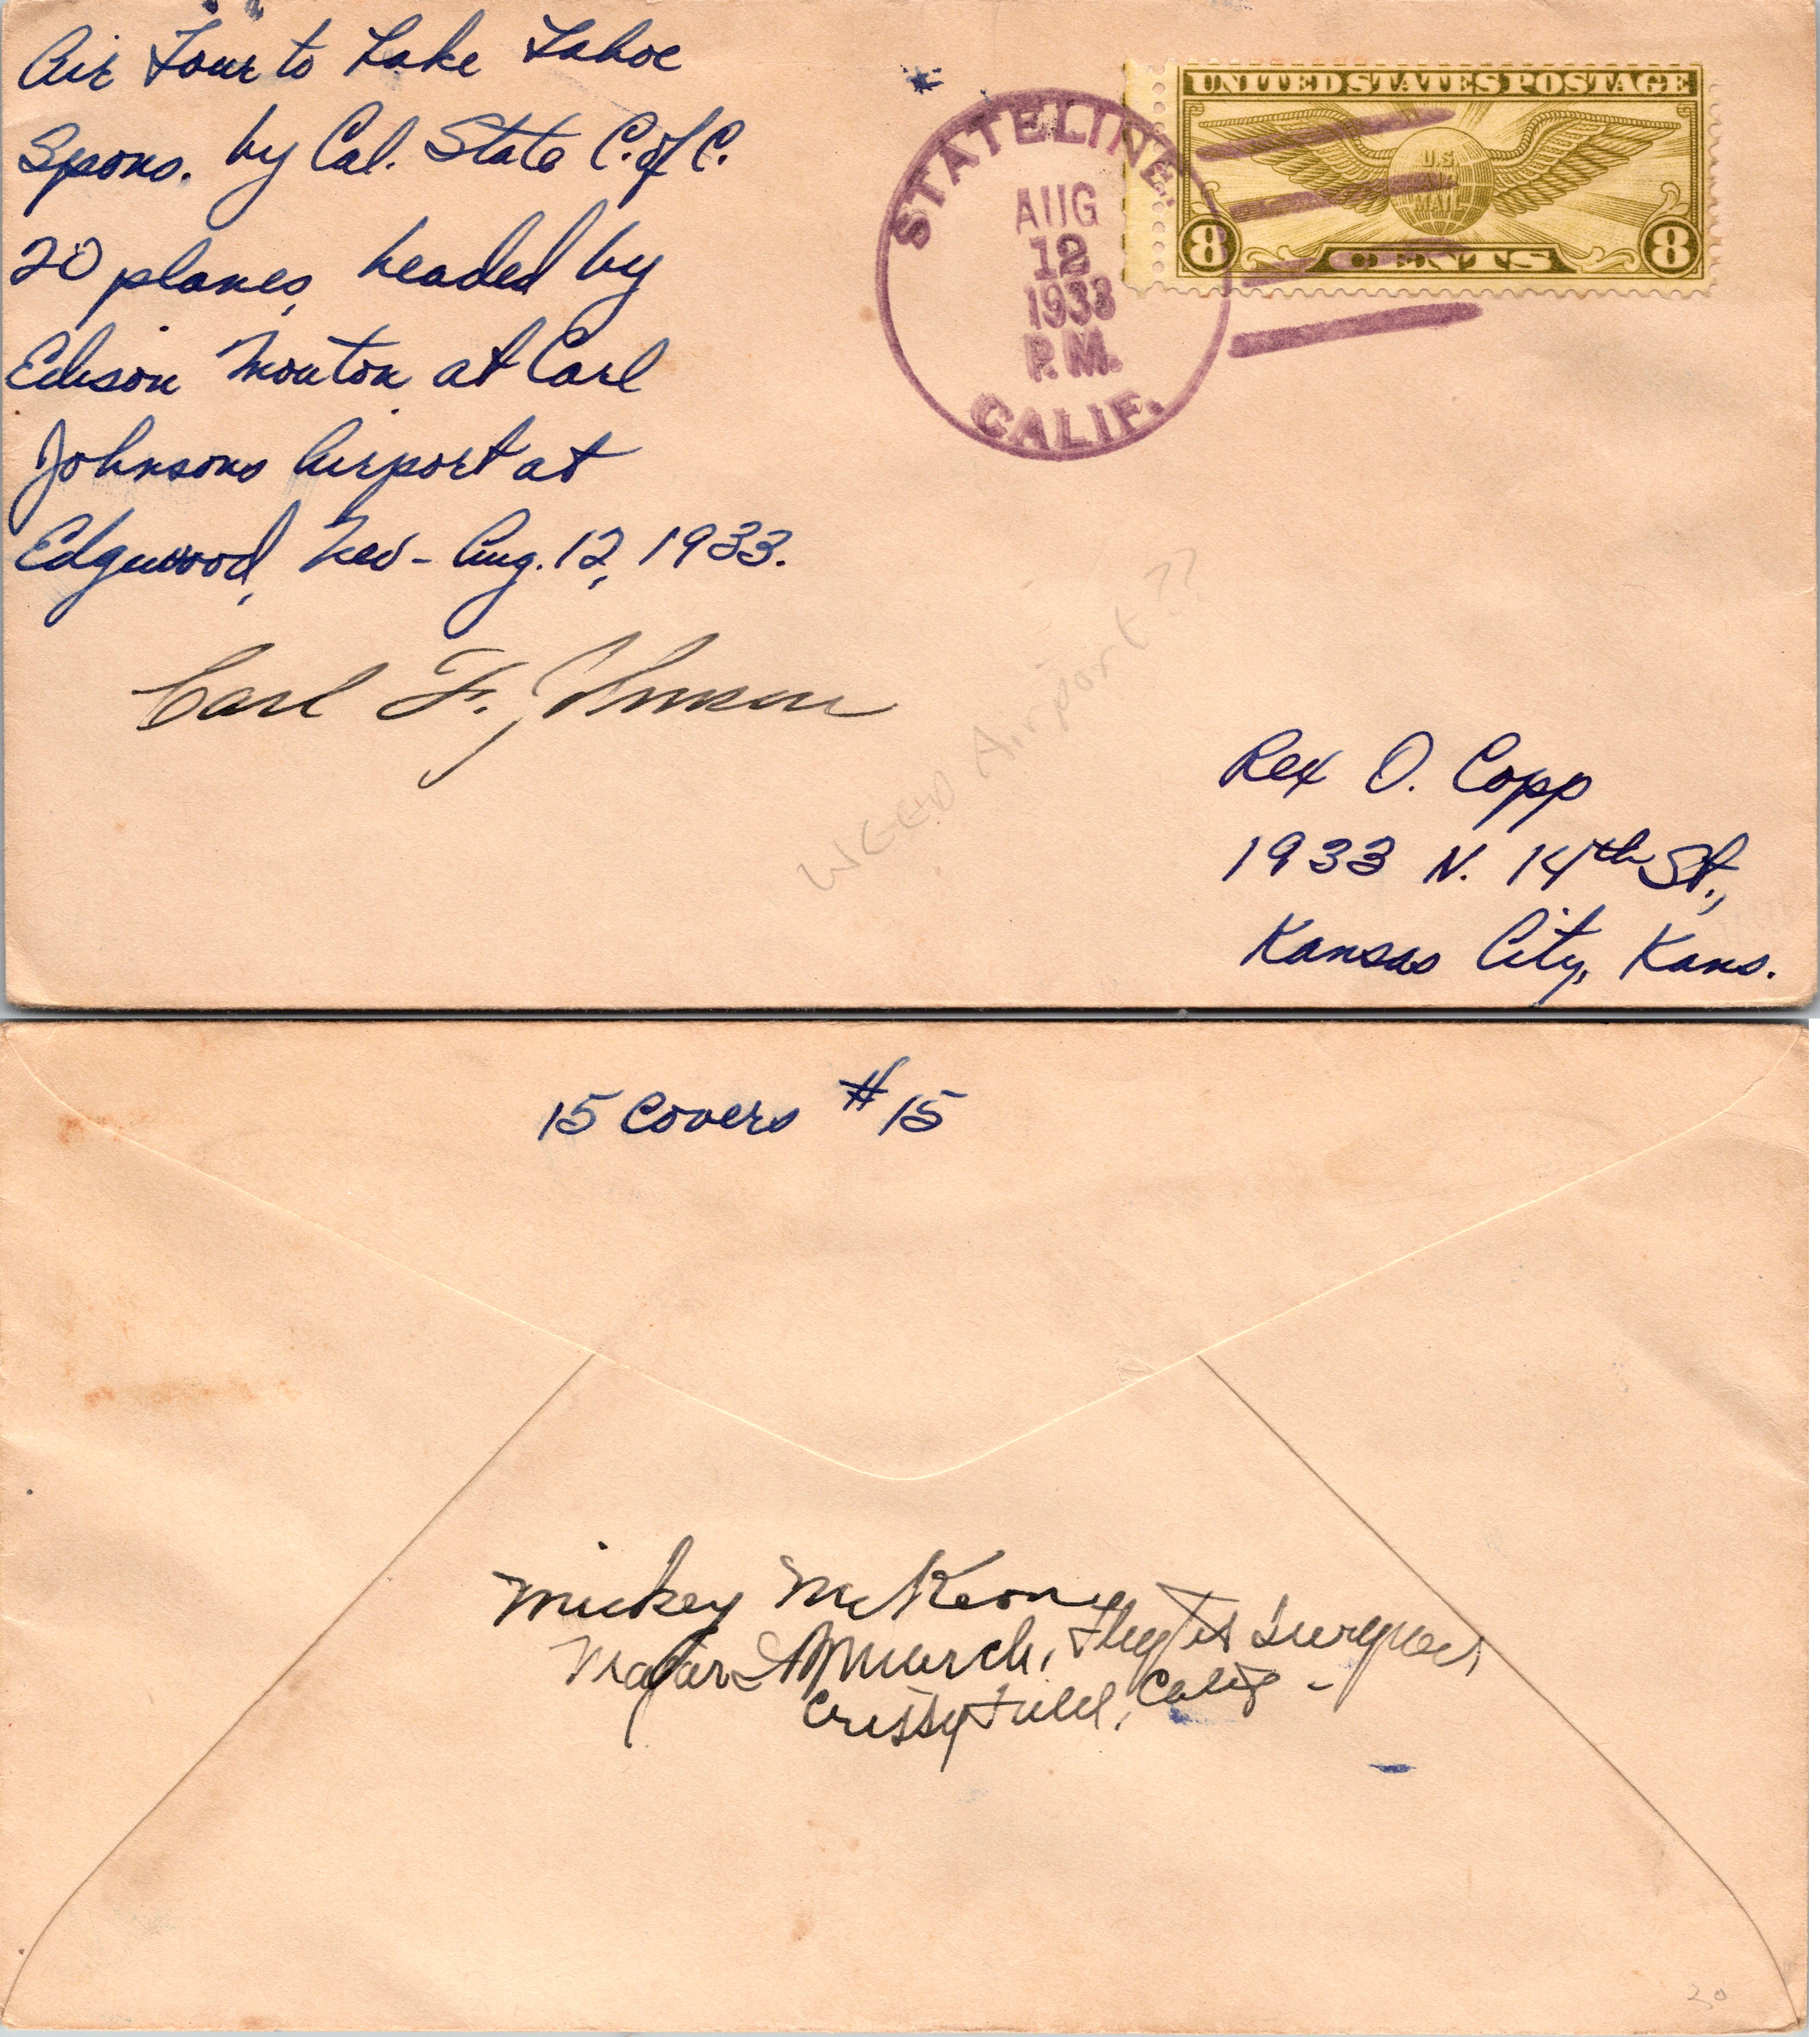 Air Tour to Lake Tahoe
Spons. by Cal. State C. of C.
20 planes, headed by
Edison Mouton at Carl
Johnsons Airport at
Edgewood, Nev - Aug. 12, 1933.
Carl F. Johnson
STATELINE.
AUG
12
1933
P.M.
CALIF.
UNITED STATES POSTAGE
U.S.
AIR
MAIL
8 CENTS 8
WEED Airport ??
Rex O. Copp
1933 N. 14th St.,
Kansas City, Kans.
15 Covers #15
Mickey McKeon
Major Murch, Flight Surgeon,
Crissy Field, Calif -
20